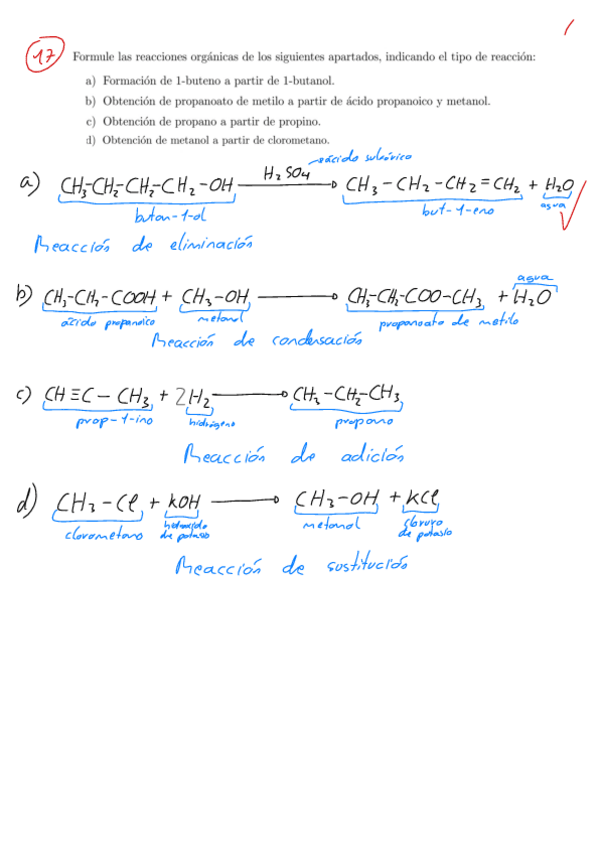 17 Formule las reacciones orgánicas de los siguientes apartados, indicando el tipo de reacción:
a) Formación de 1-buteno a partir de 1-butanol.
b) Obtención de propanoato de metilo a partir de ácido propanoico y metanol.
c) Obtención de propano a partir de propino.
d) Obtención de metanol a partir de clorometano.
ácido sulfúrico
H₂SO₄
a) CH₃-CH₂-CH₂-CH₂-OH → CH₃-CH₂-CH₂=CH₂ + H₂O
butan-1-ol but-1-eno agua
Reacción de eliminación
agua
b) CH₃-CH₂-COOH + CH₃-OH → CH₃-CH₂-COO-CH₃ + H₂O
ácido propanoico metanol propanoato de metilo
Reacción de condensación
c) CH≡C-CH₃ + 2H₂ → CH₃-CH₂-CH₃
prop-1-ino hidrógeno propano
Reacción de adición
d) CH₃-Cl + KOH → CH₃-OH + KCl
clorometano hidróxido de potasio metanol cloruro de potasio
Reacción de sustitución